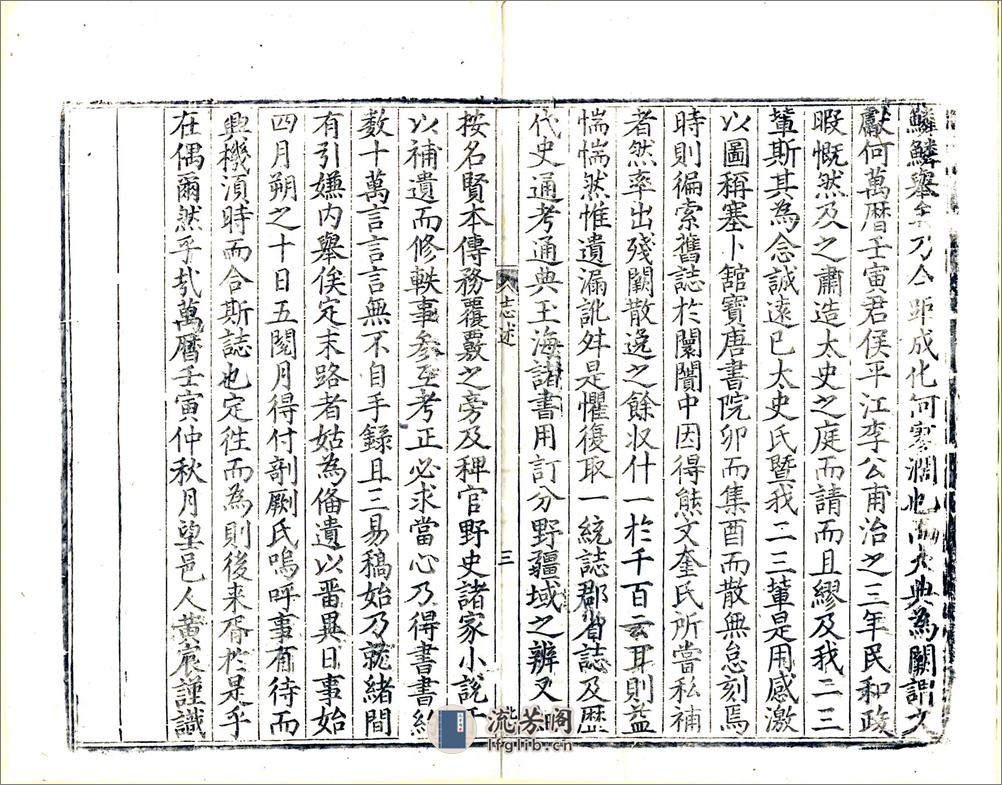 鱗鱗舉乃今距成化何寥濶也大典為闕謂文
獻何萬曆壬寅君侯平江李公甫治之三年民和政
暇慨然及之肅造太史之庭而請而且繆及我二三
輩斯其為念誠遠已太史氏暨我二三輩是用感激
以圖稱塞卜舘寶唐書院卯而集酉而散無怠刻焉
時則徧索舊誌於闤闠中因得熊文奎氏所嘗私補
者然率出殘闕散逸之餘収什一於千百云耳則益
惴惴然惟遺漏訛舛是懼復取一統誌郡省誌及歷
代史通考通典玉海諸書用訂分野疆域之辨又
志述
三
按名賢本傳務覆覈之旁及稗官野史諸家小說
以補遺而修軼事叅互考正必求當心乃得書書
数十萬言言言無不自手錄且三易稿始乃就緒間
有引嫌內舉俟定末路者姑為俻遺以畱異日事始
四月朔之十日五閱月得付剞劂氏嗚呼事有待而
興機湏時而合斯誌也定徃而為則後来胥於是乎
在偶爾然乎㢤萬曆壬寅仲秋月望邑人黃宸謹識
流芳閣
lfglib.cn